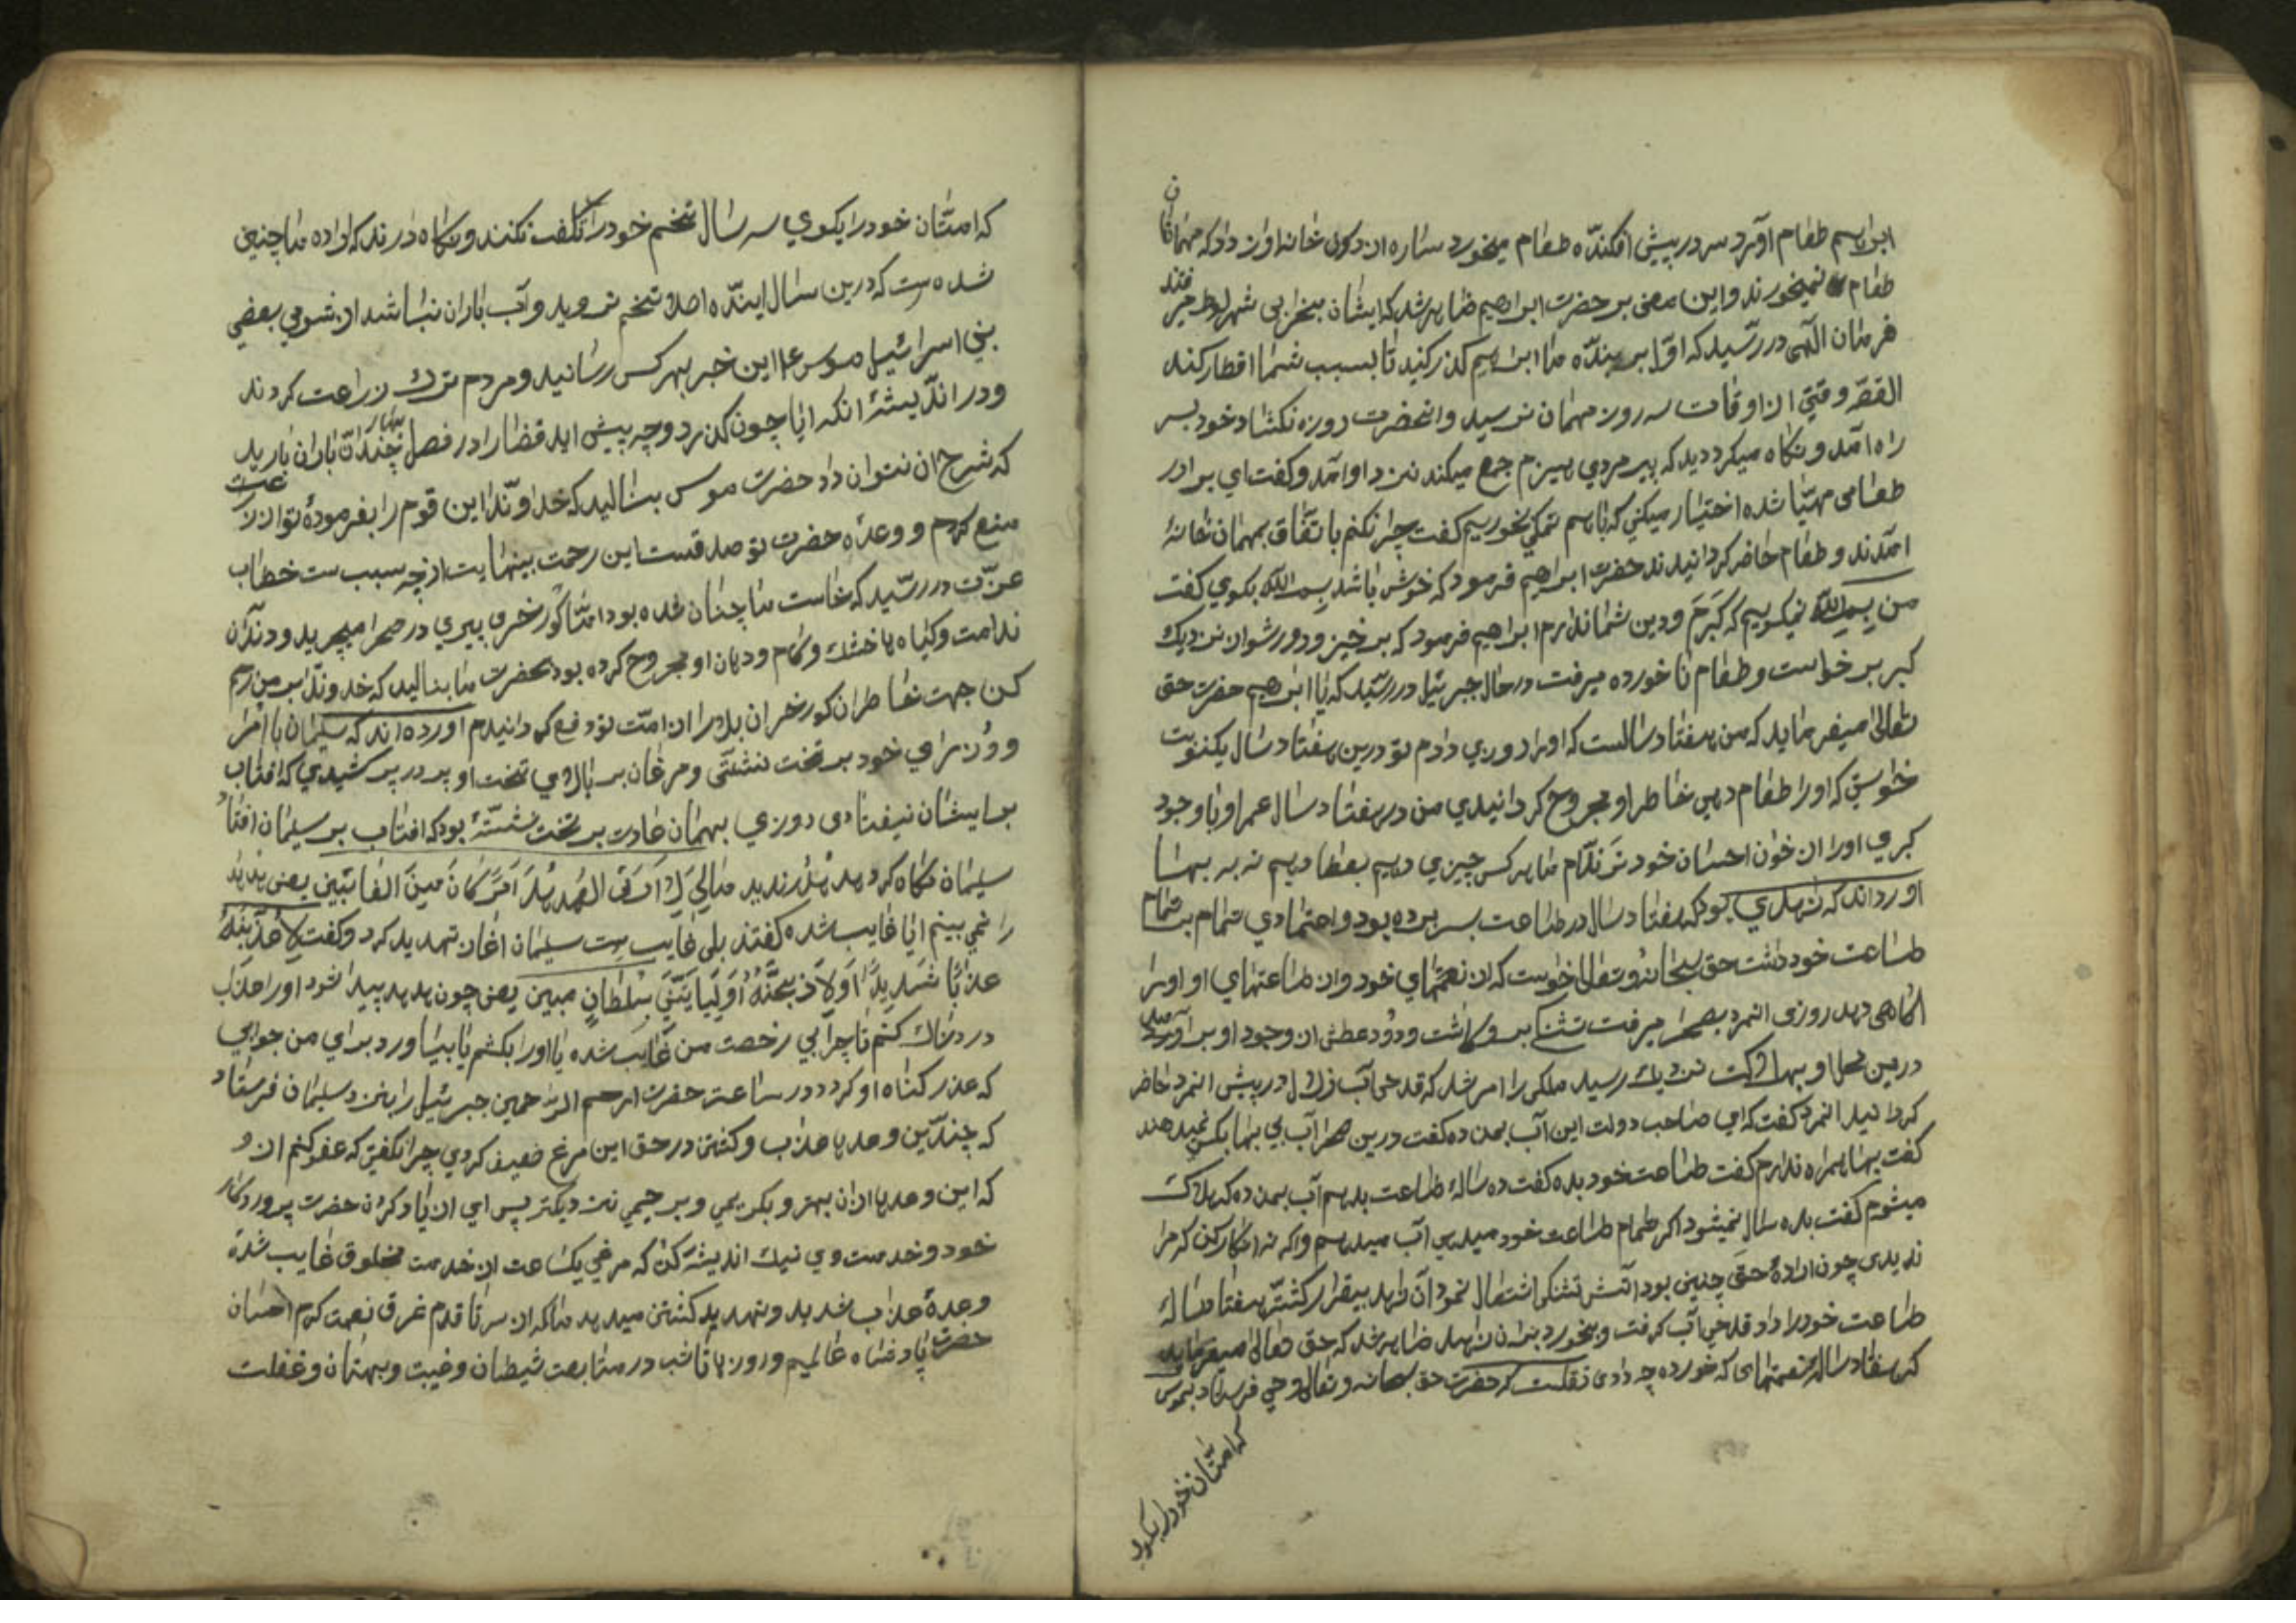 ابراهیم طعام آورد سر در پیش افکنده طعام میخورد ساره از درون خانه اواز داد که مهمانان
طعام نمیخورند و این معنی بر حضرت ابراهیم ظاهر شد که ایشان بخرابی شهر لوط میرفتند
فرمان الهی در رسید که اولا بر بنده ما ابراهیم گذر کنید تا بسبب شما افطار کند
القصه وقتی از اوقات سه روز مهمان نرسید و انحضرت روزه نکشاد خود بسر
راه آمد و نکاه میکرد دید که پیر مردی هیزم جمع میکند نزد او آمد و کفت ای برادر
طعامی مهیّا شده اختیار میکنی که باهم نمکی بخوریم کفت چرا نکنم باتفاق بمهمان خانهٔ
آمدند و طعام حاضر کردانیدند حضرت ابراهیم فرمود که خوش باشد بسم الله بکوی کفت
من بسم الله نمیکویم که کبرم و دین شما ندارم ابراهیم فرمود که برخیز و دور شو از نزدیک
کبر برخواست و طعام ناخورده میرفت در حال جبرئیل در رسید که یا ابراهیم حضرت حق
تعالی میفرماید که من هفتاد سالست که اورا روزی دادم تو درین هفتاد سال یکنوبت
خواستی که اورا طعام دهی خاطر او مجروح کردانیدی من در هفتاد سال عمر او باوجود
کبری اورا از خوان احسان خود نراندم ما هر کس چیزی دهیم بعطا دهیم نه به بها
اورده‌اند که زاهدی بود که هفتاد سال در طاعت بسر برده بود و اعتمادی تمام بتمام
طاعت خود داشت حق سبحانه و تعالی خواست که از نعمتهای خود و از طاعتهای او اورا
اکاهی دهد روزی الزمرد بصحرا میرفت تشنکی برو کاشت و دود عطش از وجود او برآمد
درین محل او بهلاکت نزدیک رسید ملکی را امر شد که قدحی آب زلال در پیش المرد حاضر
کردانید المرد کفت که ای صاحب دولت این آب بمن ده کفت درین صحرا آب بی بها بکس نمیدهند
کفت بها همراه ندارم کفت طاعت خود بده کفت ده ساله طاعت بدهم آب بمن ده که هلاک
میشوم کفت بده سال نمیشود اکر تمام طاعت خود میدهی آب میدهم و اکر نه انکار کن که مرا
ندیدی چون ارادهٔ حق چنین بود آتش تشنکی اشتعال نمود آن زاهد بیقرار کشته هفتاد سالهٔ
طاعت خودرا داد قدحی آب کرفت و بخورد بران زاهد ظاهر شد که حق تعالی میفرماید
که هفتاد ساله نعمتهای که خورده چه دادی نقلست که حضرت حق سبحانه و تعالی وحی فرستاد بموسی
که امتان خودرا بکوی
که امتان خودرا بکوی سه سال تخم خودرا تلف نکنند و نکاه دارند که اراده ما چنین
شده‌ست که درین سال اینده اصلا تخم نروید و آب باران نباشد از شومی بعضی
بنی اسرائیل موسی ع م این خبر بهر کس رسانید و مردم ترک زراعت کردند
و در اندیشهٔ انکه ایا چون کذرد و چه پیش اید قضارا در فصل بهار چندان باران بارید
که شرح ان نتوان داد حضرت موسی بنالید که خداوندا این قوم را بفرمودهٔ تو از زراعت
منع کردم و وعده حضرت تو صدقست این رحمت بینهایت از چه سبب ست خطاب
عزت در رسید که خاست ما چنان شده بود امّا کورخری پیری در صحرا میچرید و دندان
نداشت و کیاه ها خشک و کام و دهان او مجروح کرده بود بحضرت ما بنالید که خداوندا بر من رحم
کن جهت خاطر ان کورخر ان بلا را از امّت تو دفع کردانیدم اورده‌اند که سلیمان با امرا
و وزرای خود بر تخت ننشستی و مرغان بر بالای تخت او پر در پر کشیدی که افتاب
بر ایشان نیفتادی روزی بهمان عادت بر تخت نشسته بود که افتاب بر سلیمان افتاد
سلیمان نکاه کرد هدهد را ندید مالی لا اری الهدهد ام کان من الغائبین یعنی هدهد
را نمی بینم ایا غایب شده کفتند بلی غایب ست سلیمان اغاز تهدید کرد و کفت لاعذبنه
عذابا شدیدا او لاذبحنه او لیاتینی بسلطان مبین یعنی چون هدهد پیدا شود اورا عذاب
دردناک کنم تا چرا بی رخصت من غایب شده یا اورا بکشم یا بیاورد برای من جوابی
که عذر کناه او کردد در ساعت حضرت ارحم الراحمین جبرئیل را بنزد سلیمان فرستاد
که چندین وعدها عذاب و کشتن در حق این مرغ ضعیف کردی چرا نکفتی که عفو کنم ازو
که این وعدها ازان بهتر و بکریمی و برحیمی نزدیکتر پس ای از یاد کردن حضرت پروردکار
خود و خدمت وی نیک اندیشه کن که مرغی یکساعت از خدمت مخلوق غایب شده
وعدهٔ عذاب شدید و تهدید کشتن میدهد ما که از سر تا قدم غرق نعمت کرم احسان
حضرت پادشاه عالمیم و روزها تا شب در متابعت شیطان و غیبت و بهتان و غفلت